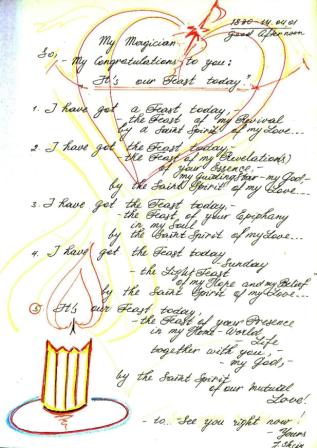 18³⁰-14.04.01
good Afternoon
My Magician
So,
- My Congratulations to you:
"It's our Feast today"
1. I have got a Feast today,-
- the Feast of my Revival
by a Saint Spirit of my Love...
2. I have got the Feast today,-
- the Feast of my Revelation(s)
of your Essence -
- my Guiding Star - my God,-
by the Saint Spirit of my Love...
3. I have got the Feast today,-
- the Feast of your Epiphany
in my Soul
by the Saint Spirit of my Love...
4. I have got the Feast today
- Sunday
- the Light Feast
of my Hope and my Belief
by the Saint Spirit of my Love...
5. It's our Feast today,
- the Feast of your Presence
in my Home - World
- Life
together with you,-
- my God,-
by the Saint Spirit
of our mutual
Love!
- to.. See you right now!
- Yours